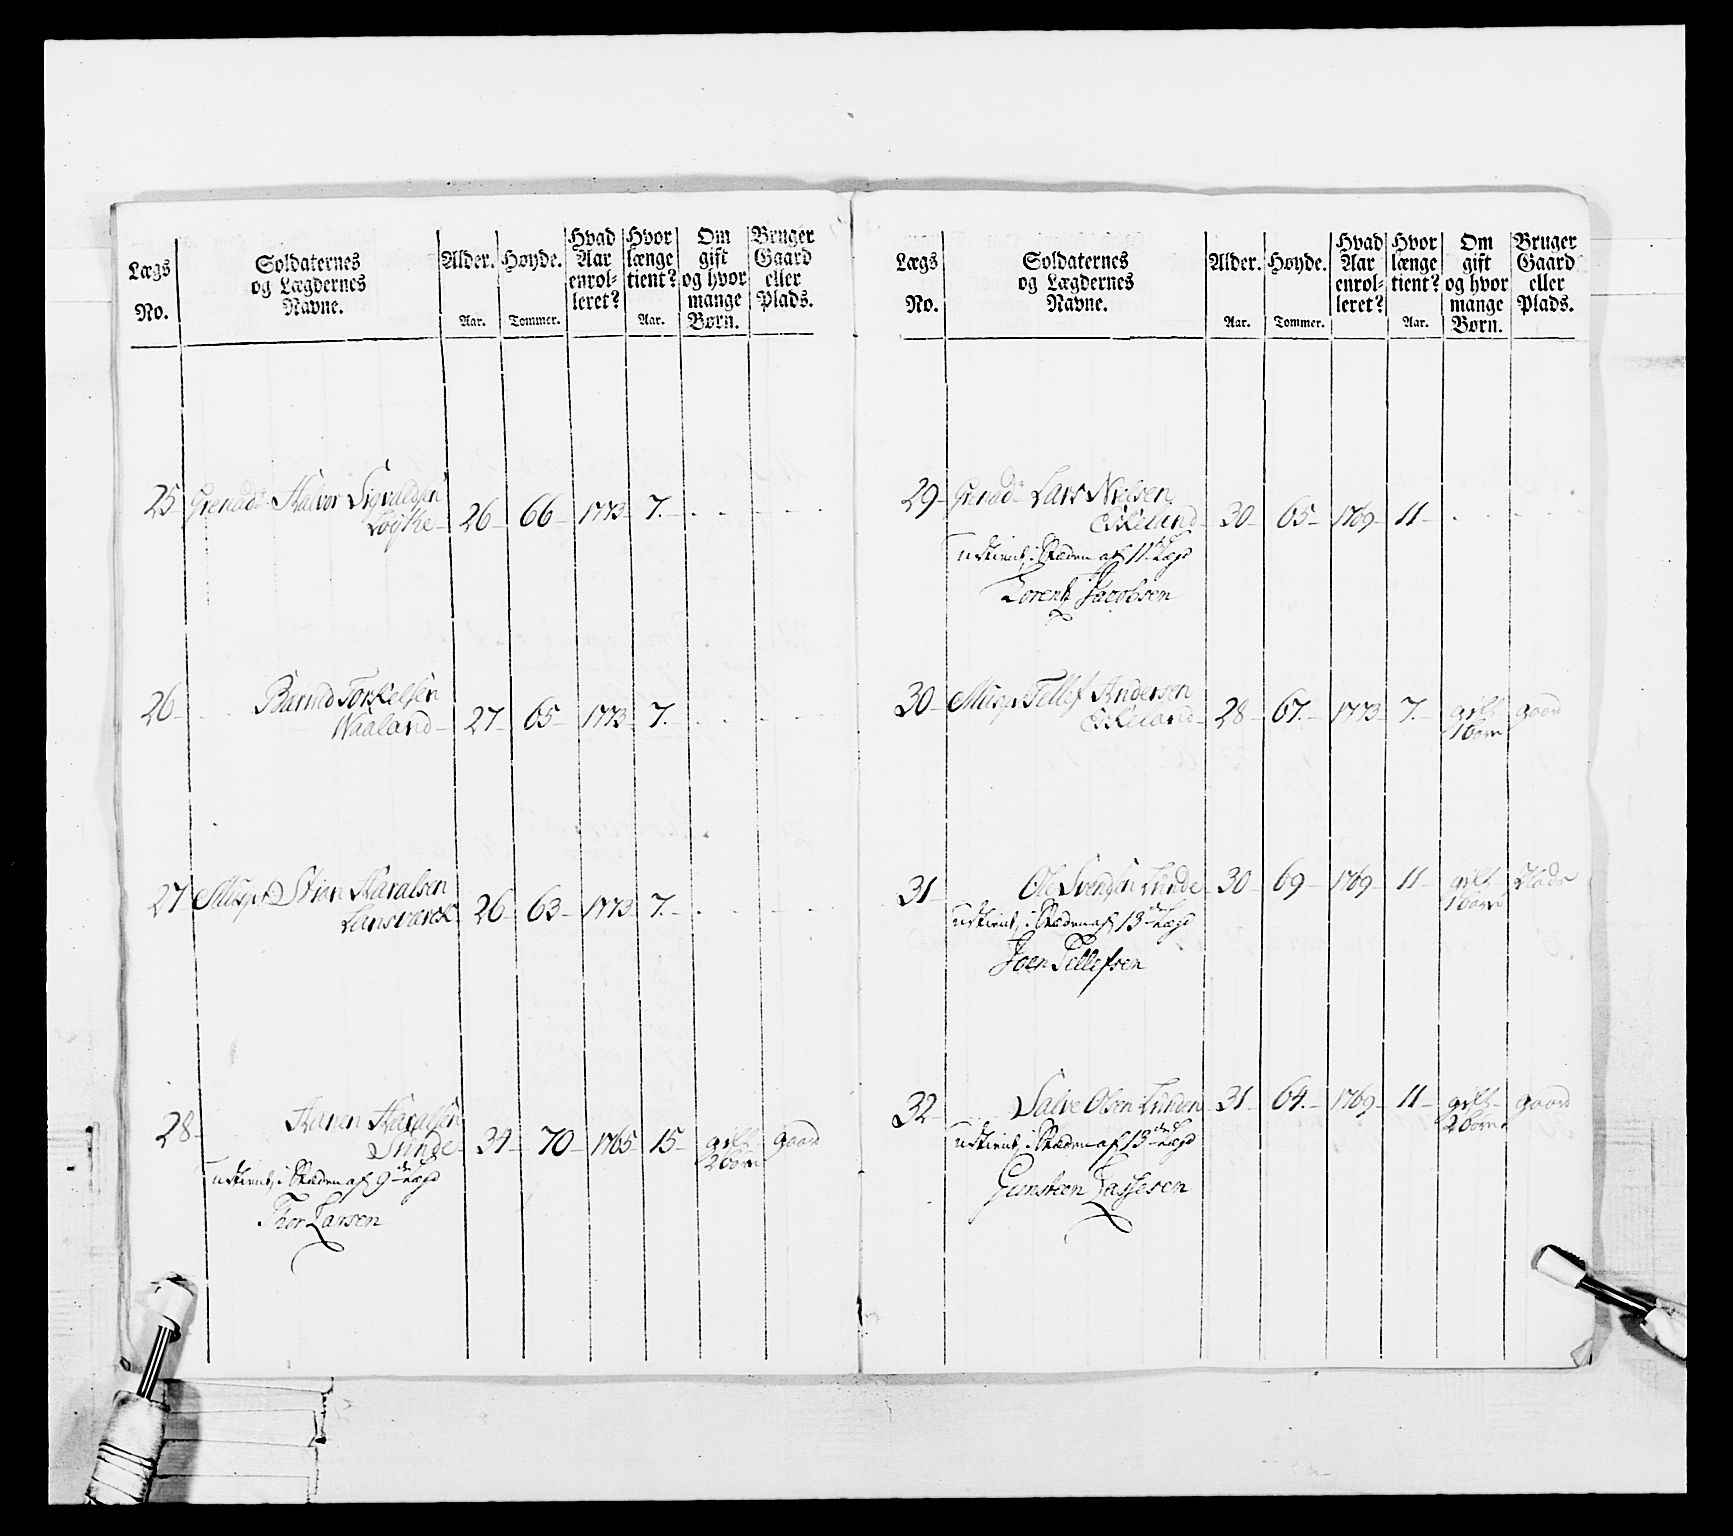 Lægs No. Soldaternes og Lægdernes Navne. Alder. Aar. Høyde. Tommer. Hvad Aar enrol-leret? Hvor længe tient? Aar. Om gift og hvor mange Børn. Bruger Gaard eller Plads.
25 Grenadr Halvor Sigvaldsen
Løythe 26 66 1773 7.
26 Barnd Torkelsen
Waaland 27 65 1773 7.
27 Musqr Stian Haralsen
26 63 1773 7.
28 Aanen Haralsen
34 70 1765 15 gift gaard
2 børn
udtient, i Stæden af 9de Lægd
Thor Larsen
Lægs No. Soldaternes og Lægdernes Navne. Alder. Aar. Høyde. Tommer. Hvad Aar enrol-leret? Hvor længe tient? Aar. Om gift og hvor mange Børn. Bruger Gaard eller Plads.
29 Grenadr Lars Nielsen
Eskeland 30 65 1769 11
udtient, i Stæden af 11te Lægd
Lorentz Jacobsen
30 Musqr Tellef Andersen
Eskeland 28 67. 1773 7. gift gaard
1 barn
31 Ole Svendsen Lunde 30 69 1769 11 gift Plads
1 barn
udtient, i Stæden af 13de Lægd
Joen Tellefsen
32 Salve Olsen Lunden 31 64. 1769 11 gift gaard
2 børn
udtient, i Stæden af 13de Lægd
Gunsteen Tassesen